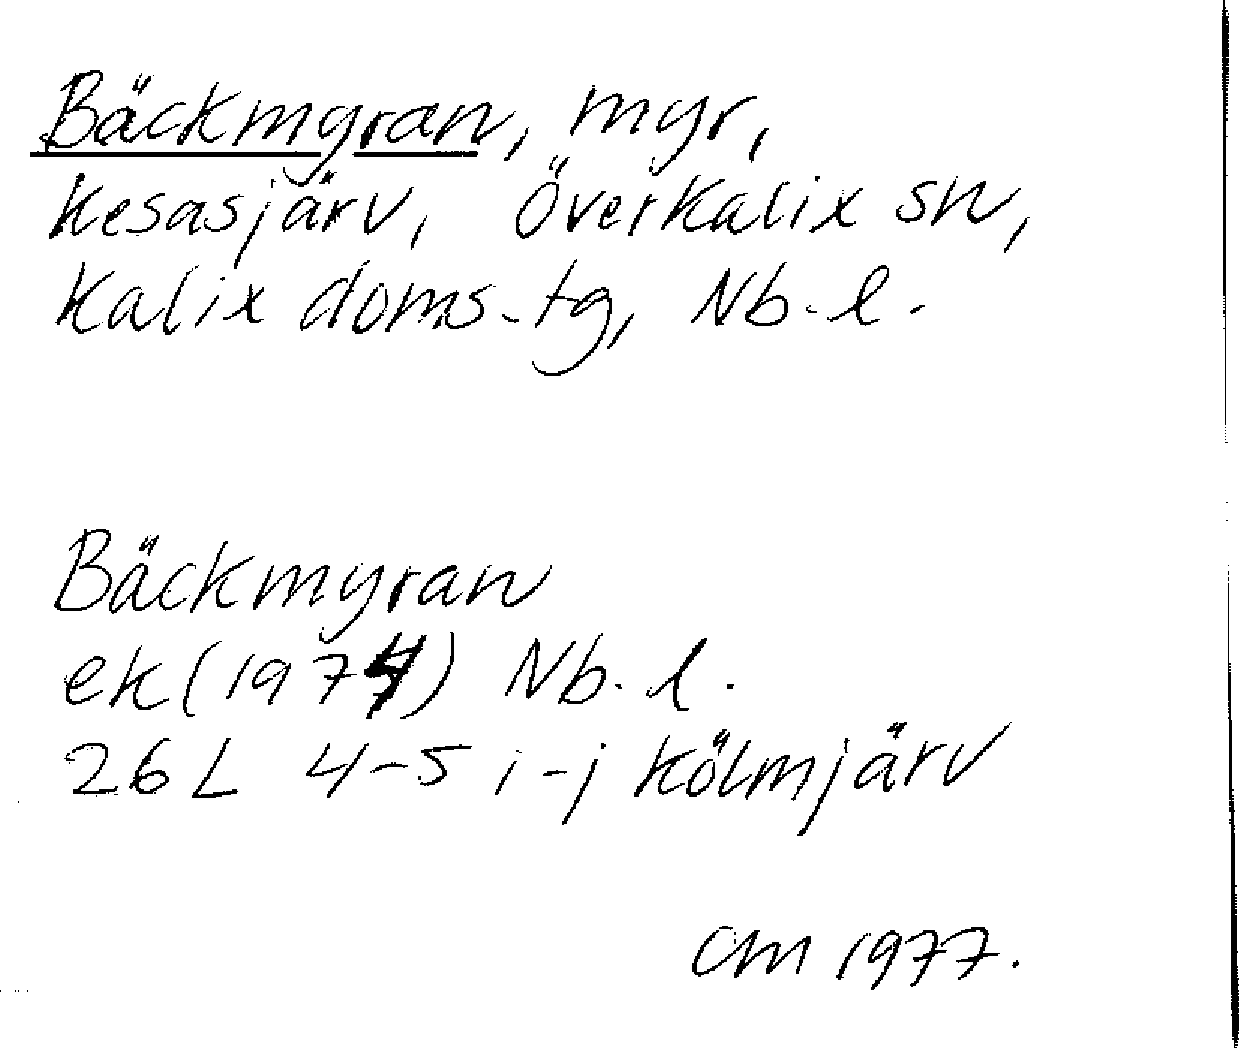 Bäckmyran, myr,
Kesasjärv, Överkalix sn,
Kalix doms.tg, Nb.l.
Bäckmyran
ek(1974) Nb.l.
26L 4-5 i-j Kölmjärv
CM 1977.